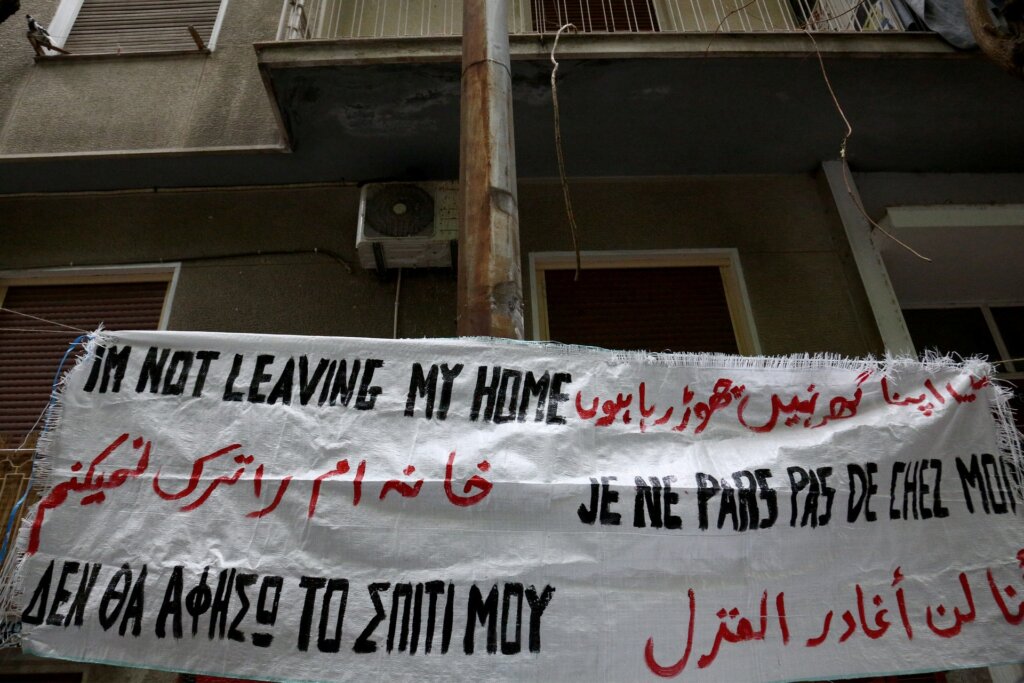 IM NOT LEAVING MY HOME
میں اپنا گھر نہیں چھوڑ رہا ہوں
خانه ام را ترک نمیکنم
JE NE PARS PAS DE CHEZ MOI
ΔΕΝ ΘΑ ΑΦΗΣΩ ΤΟ ΣΠΙΤΙ ΜΟΥ
أنا لن أغادر المنزل